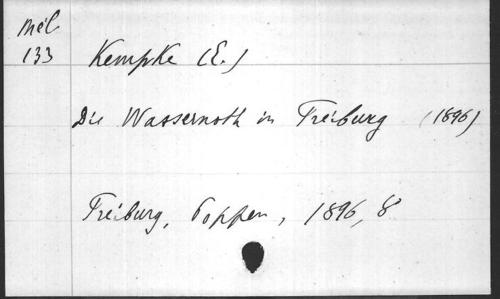 Mél
133
Kempke (E.)
Die Wassernoth in Freiburg (1896)
Freiburg, Poppen, 1896, 8